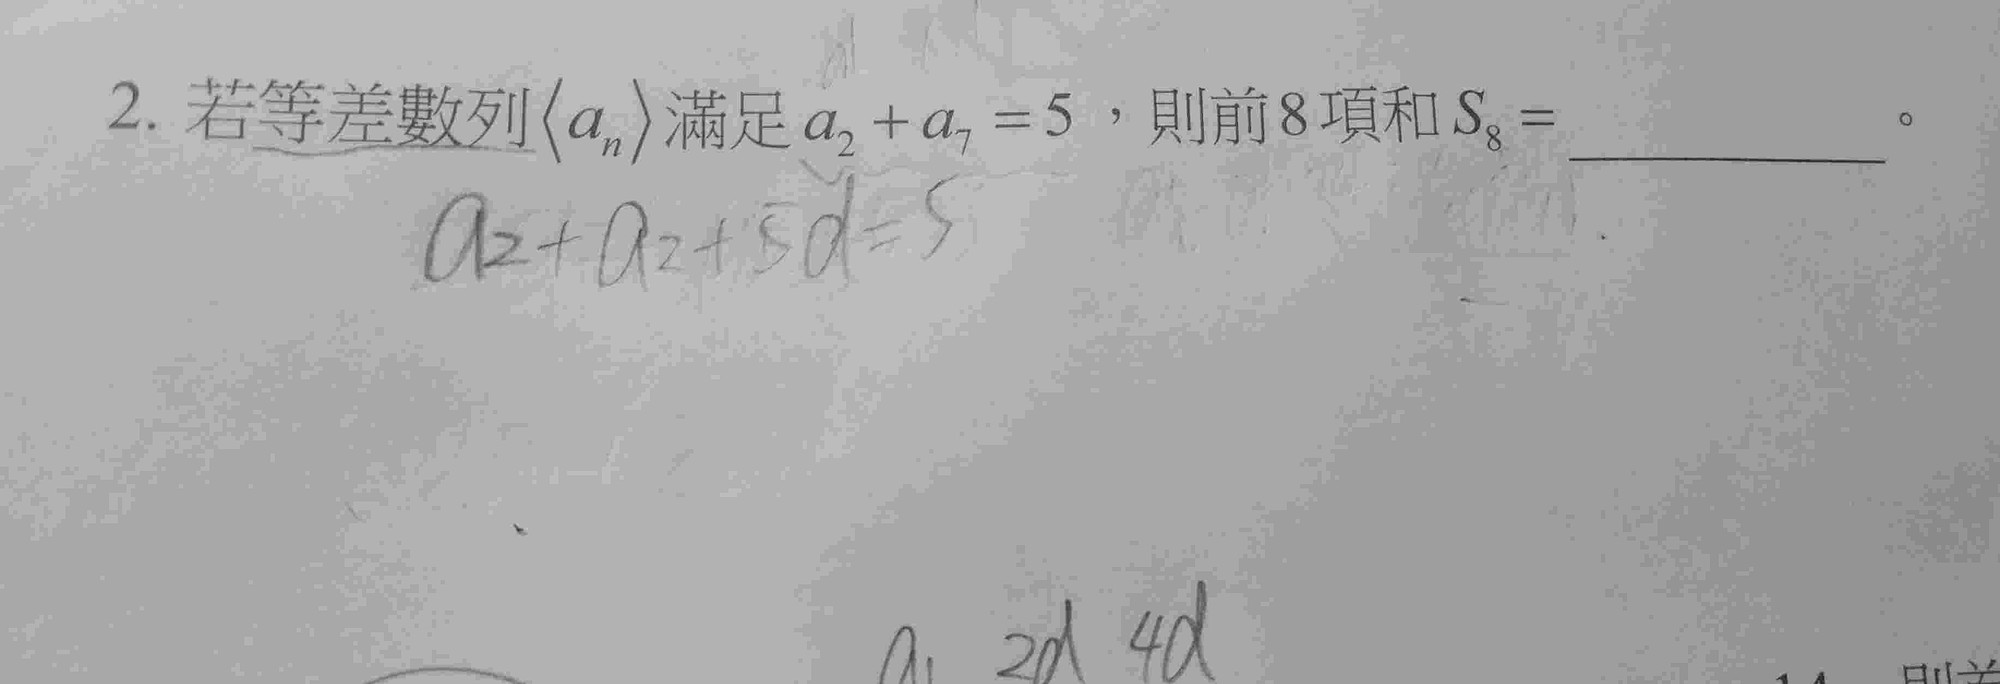 2. 若等差數列⟨aₙ⟩滿足 a₂ + a₇ = 5，則前8項和 S₈ = ________。
a₂+a₂+5d=5
a₁ 2d 4d